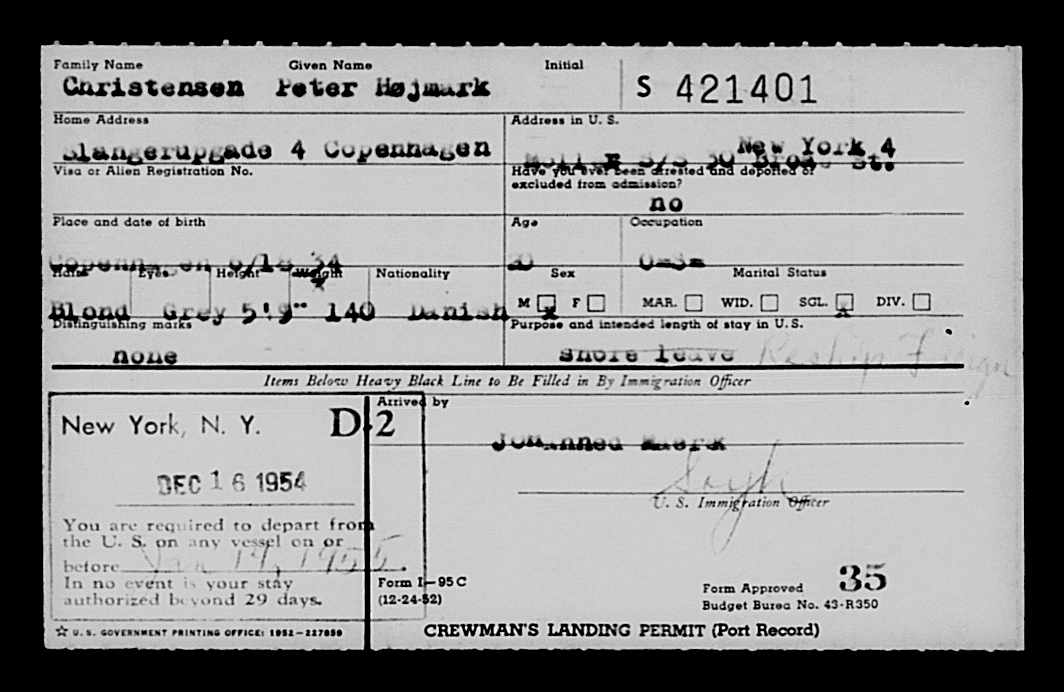 Family Name Given Name Initial
Christensen Peter Højmark S 421401
Home Address Address in U. S.
Slangerupgade 4 Copenhagen New York 4
S/S 30 Broad St.
Visa or Alien Registration No. Have you ever been arrested and deported or
excluded from admission?
no
Place and date of birth Age Occupation
Copenhagen 6/18 34 20
Hair Eyes Height Weight Nationality Sex Marital Status
M F MAR. WID. SGL. DIV.
Blond Grey 5'9" 140 Danish x x
Distinguishing marks Purpose and intended length of stay in U. S.
none shore leave Reship Foreign
Items Below Heavy Black Line to Be Filled in By Immigration Officer
Arrived by
New York, N. Y. D-2
Johannes Maersk
DEC 16 1954
U. S. Immigration Officer
You are required to depart from
the U. S. on any vessel on or
before Jan 14, 1955.
In no event is your stay
authorized beyond 29 days.
Form I-95 C
(12-24-52)
Form Approved 35
Budget Bureau No. 43-R350
☆ U. S. GOVERNMENT PRINTING OFFICE: 1952—227850
CREWMAN'S LANDING PERMIT (Port Record)